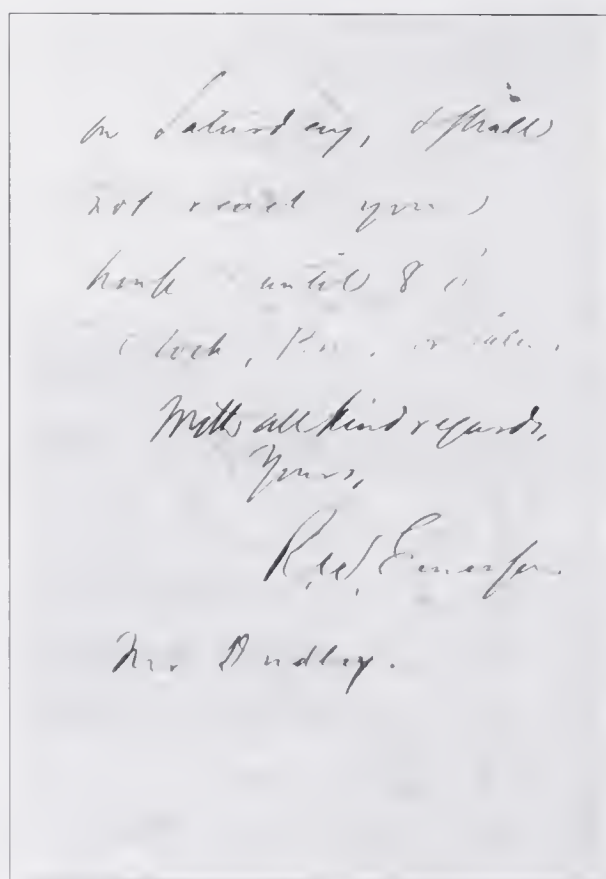 on Saturday, I shall
not reach your
house until 8 o'
clock, P.M., or later.
With all kind regards,
Yours,
R. W. Emerson
Mr Dudley.